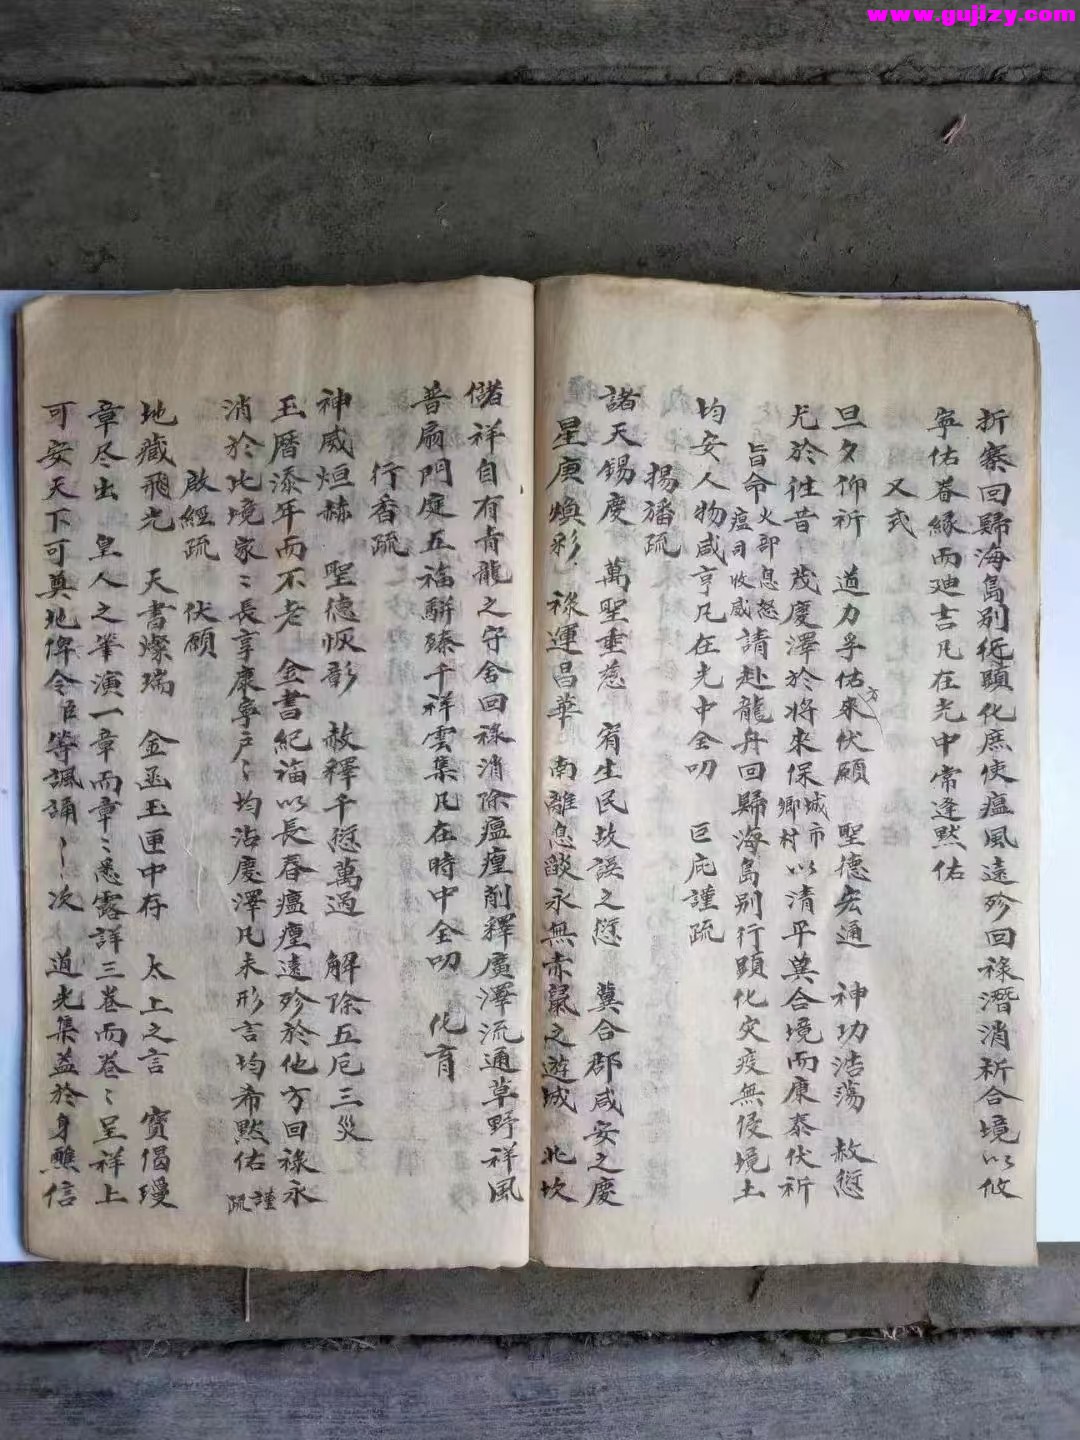 www.gujizy.com
折寮回歸海島別徃頤化庶使瘟風遠殄回祿潛消祈合境以攸
寧佑眷緣而廸吉凡在光中常逢黙佑
又式
旦夕仰祈 道力孚佑來方伏願 聖德宏通 神功浩蕩 赦愆
尤於徃昔 茂慶澤於將來保城市鄉村以清平冀合境而康泰伏祈
旨命火部息怒瘟司收威請赴龍舟回歸海島別行頤化灾疫無侵境土
均安人物咸亨凡在光中全叨 巨庇謹疏
揚旛疏
諸天錫慶 萬聖垂慈 宥生民故誤之愆 冀合郡咸安之慶
星庚煥彩 祿運昌華 南離息燄永無赤鼠之遊城 北坎
儲祥自有青龍之守舍回祿消除瘟㾮削釋廣澤流通草野祥風
普扇門庭五福駢臻千祥雲集凡在時中全叨 化育
行香疏
神威烜赫 聖德恢彰 赦釋千愆萬過 解除五厄三災
玉曆添年而不老 金書紀福以長春瘟㾮遠殄於他方回祿永
消於此境家〻長享康寧戶〻均沾慶澤凡未形言均希黙佑 謹疏
啟經疏 伏願
地藏飛光 天書燦瑞 金函玉匣中存 太上之言 寶偈瓊
章尽出 皇人之筆演一章而章〻悉露詳三卷而卷〻呈祥上
可安天下可奠地俾令臣等諷誦〻次 道光集益於身醮信